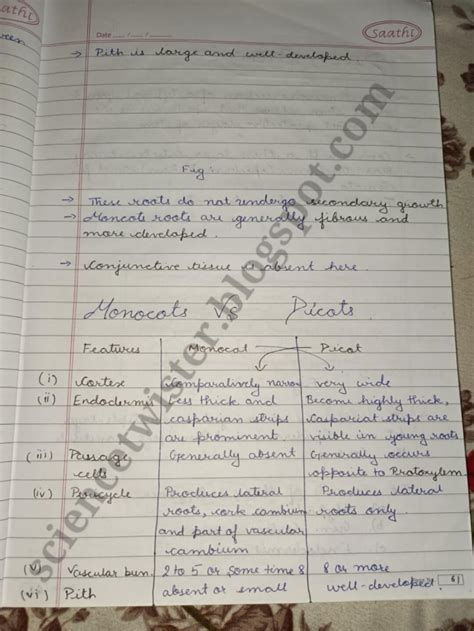 Saathi
Date ..../..../....
→ Pith is large and well-developed.
Fig:
→ These roots do not undergo secondary growth
→ Moncots roots are generally fibrous and
more developed.
→ Conjunctive tissue is absent here.
Monocots VS Dicots.
Features Monocot Dicot
(i) Cortex Comparatively narrow very wide
(ii) Endodermis Less thick and Become highly thick,
casparian strips Caspariat strips are
are prominent. visible in young roots
(iii) Passage Generally absent Generally occurs
cells opposite to Protoxylem
(iv) Pericycle Produces lateral Produces lateral
roots, cork cambium roots only.
and part of vascular
cambium
(v) Vascular bun. 2 to 5 or some time 8 8 or more
(vi) Pith absent or small well-developed. 61
sciencetwister.blogspot.com